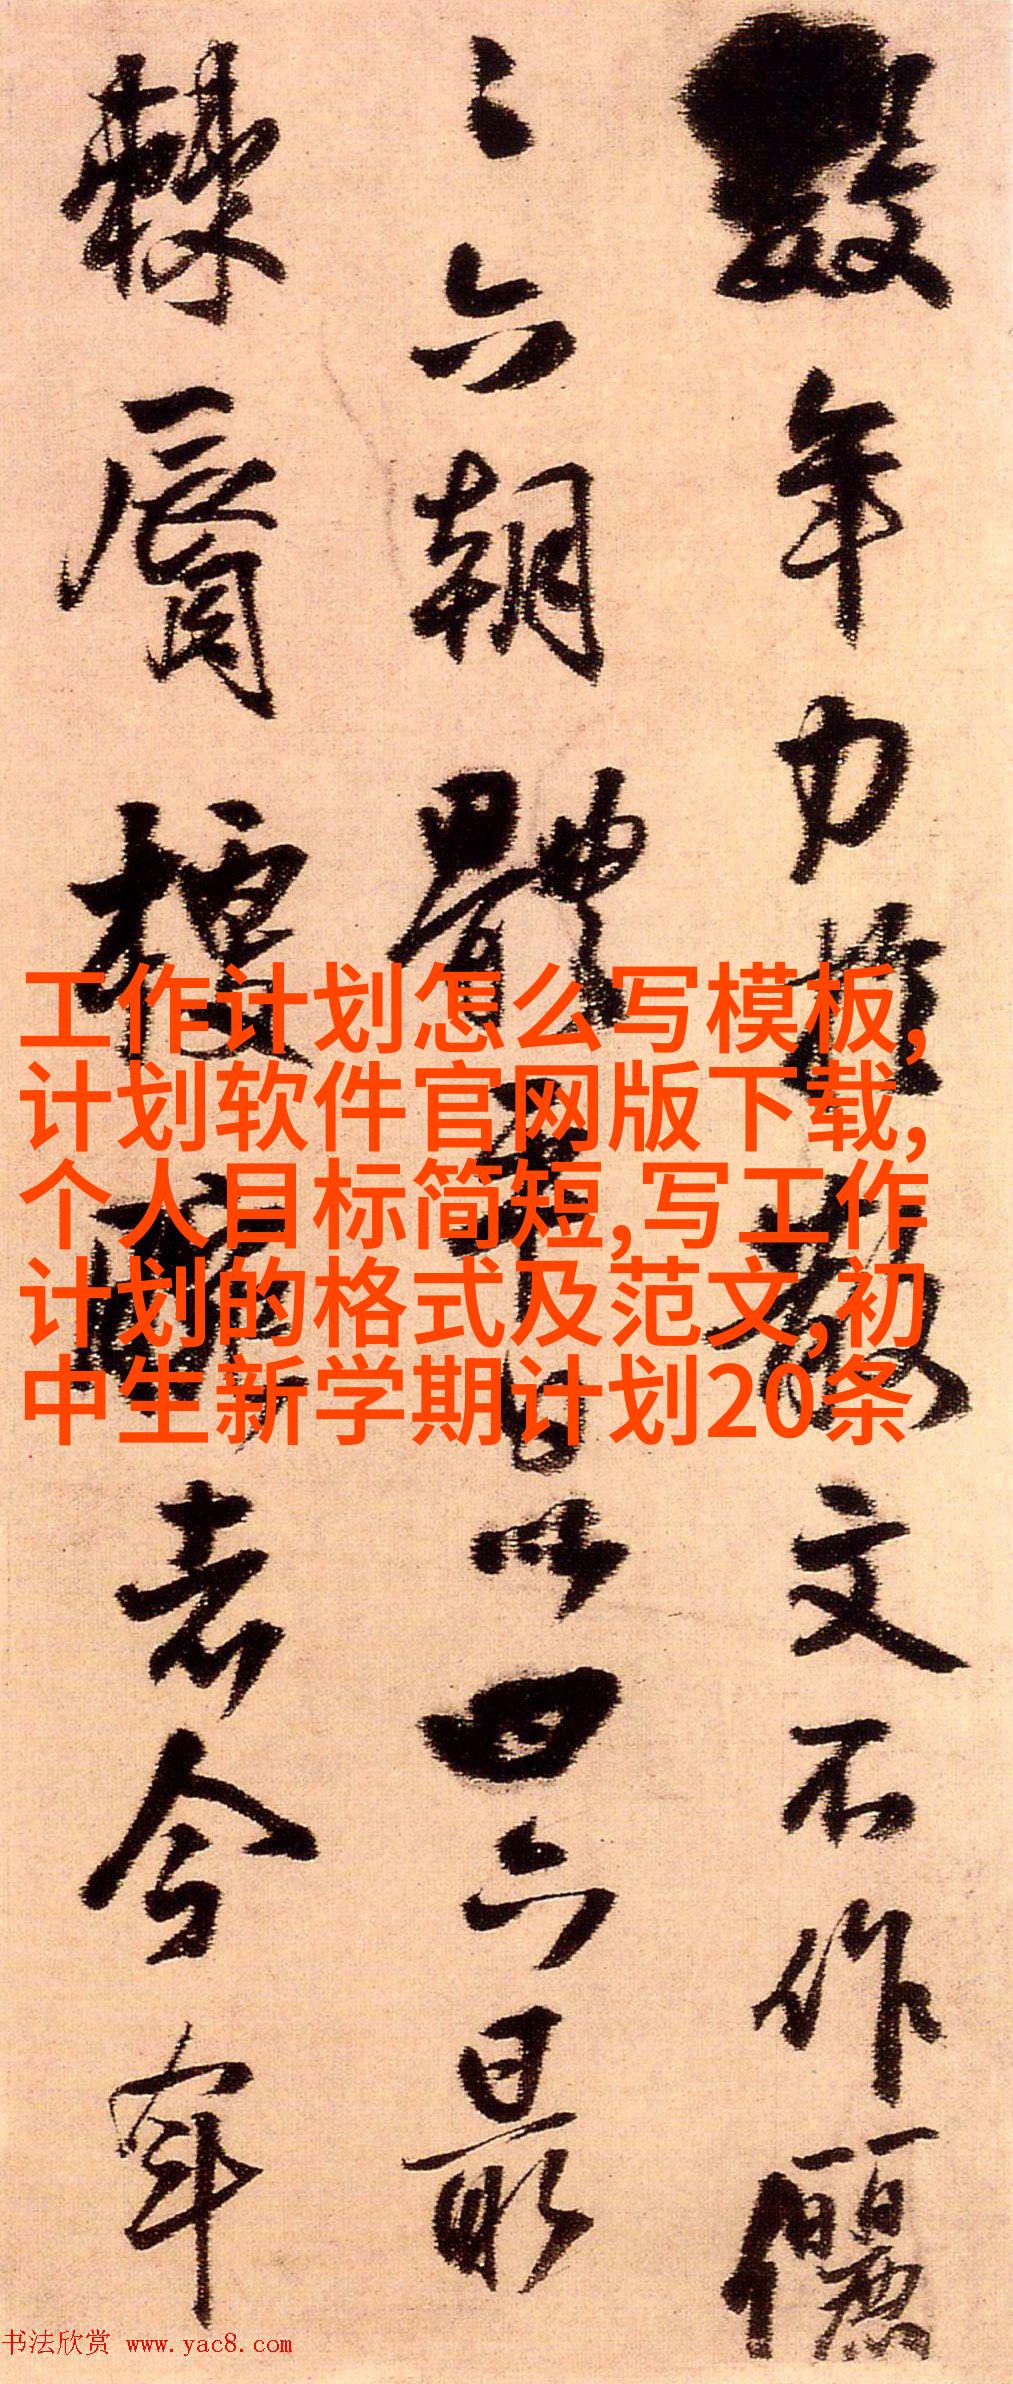 數年力散文不作儷
六朝體日以四六最
棘脣今年
工作计划怎么写模板,
计划软件官网版下载,
个人目标简短,写工作
计划的格式及范文,初
中生新学期计划20条
书法欣赏 www.yac8.com